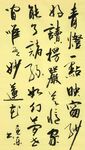 青燈一點映窗紗
好讀楞嚴莫憶家
能了諸緣如幻夢世
間唯有妙蓮花